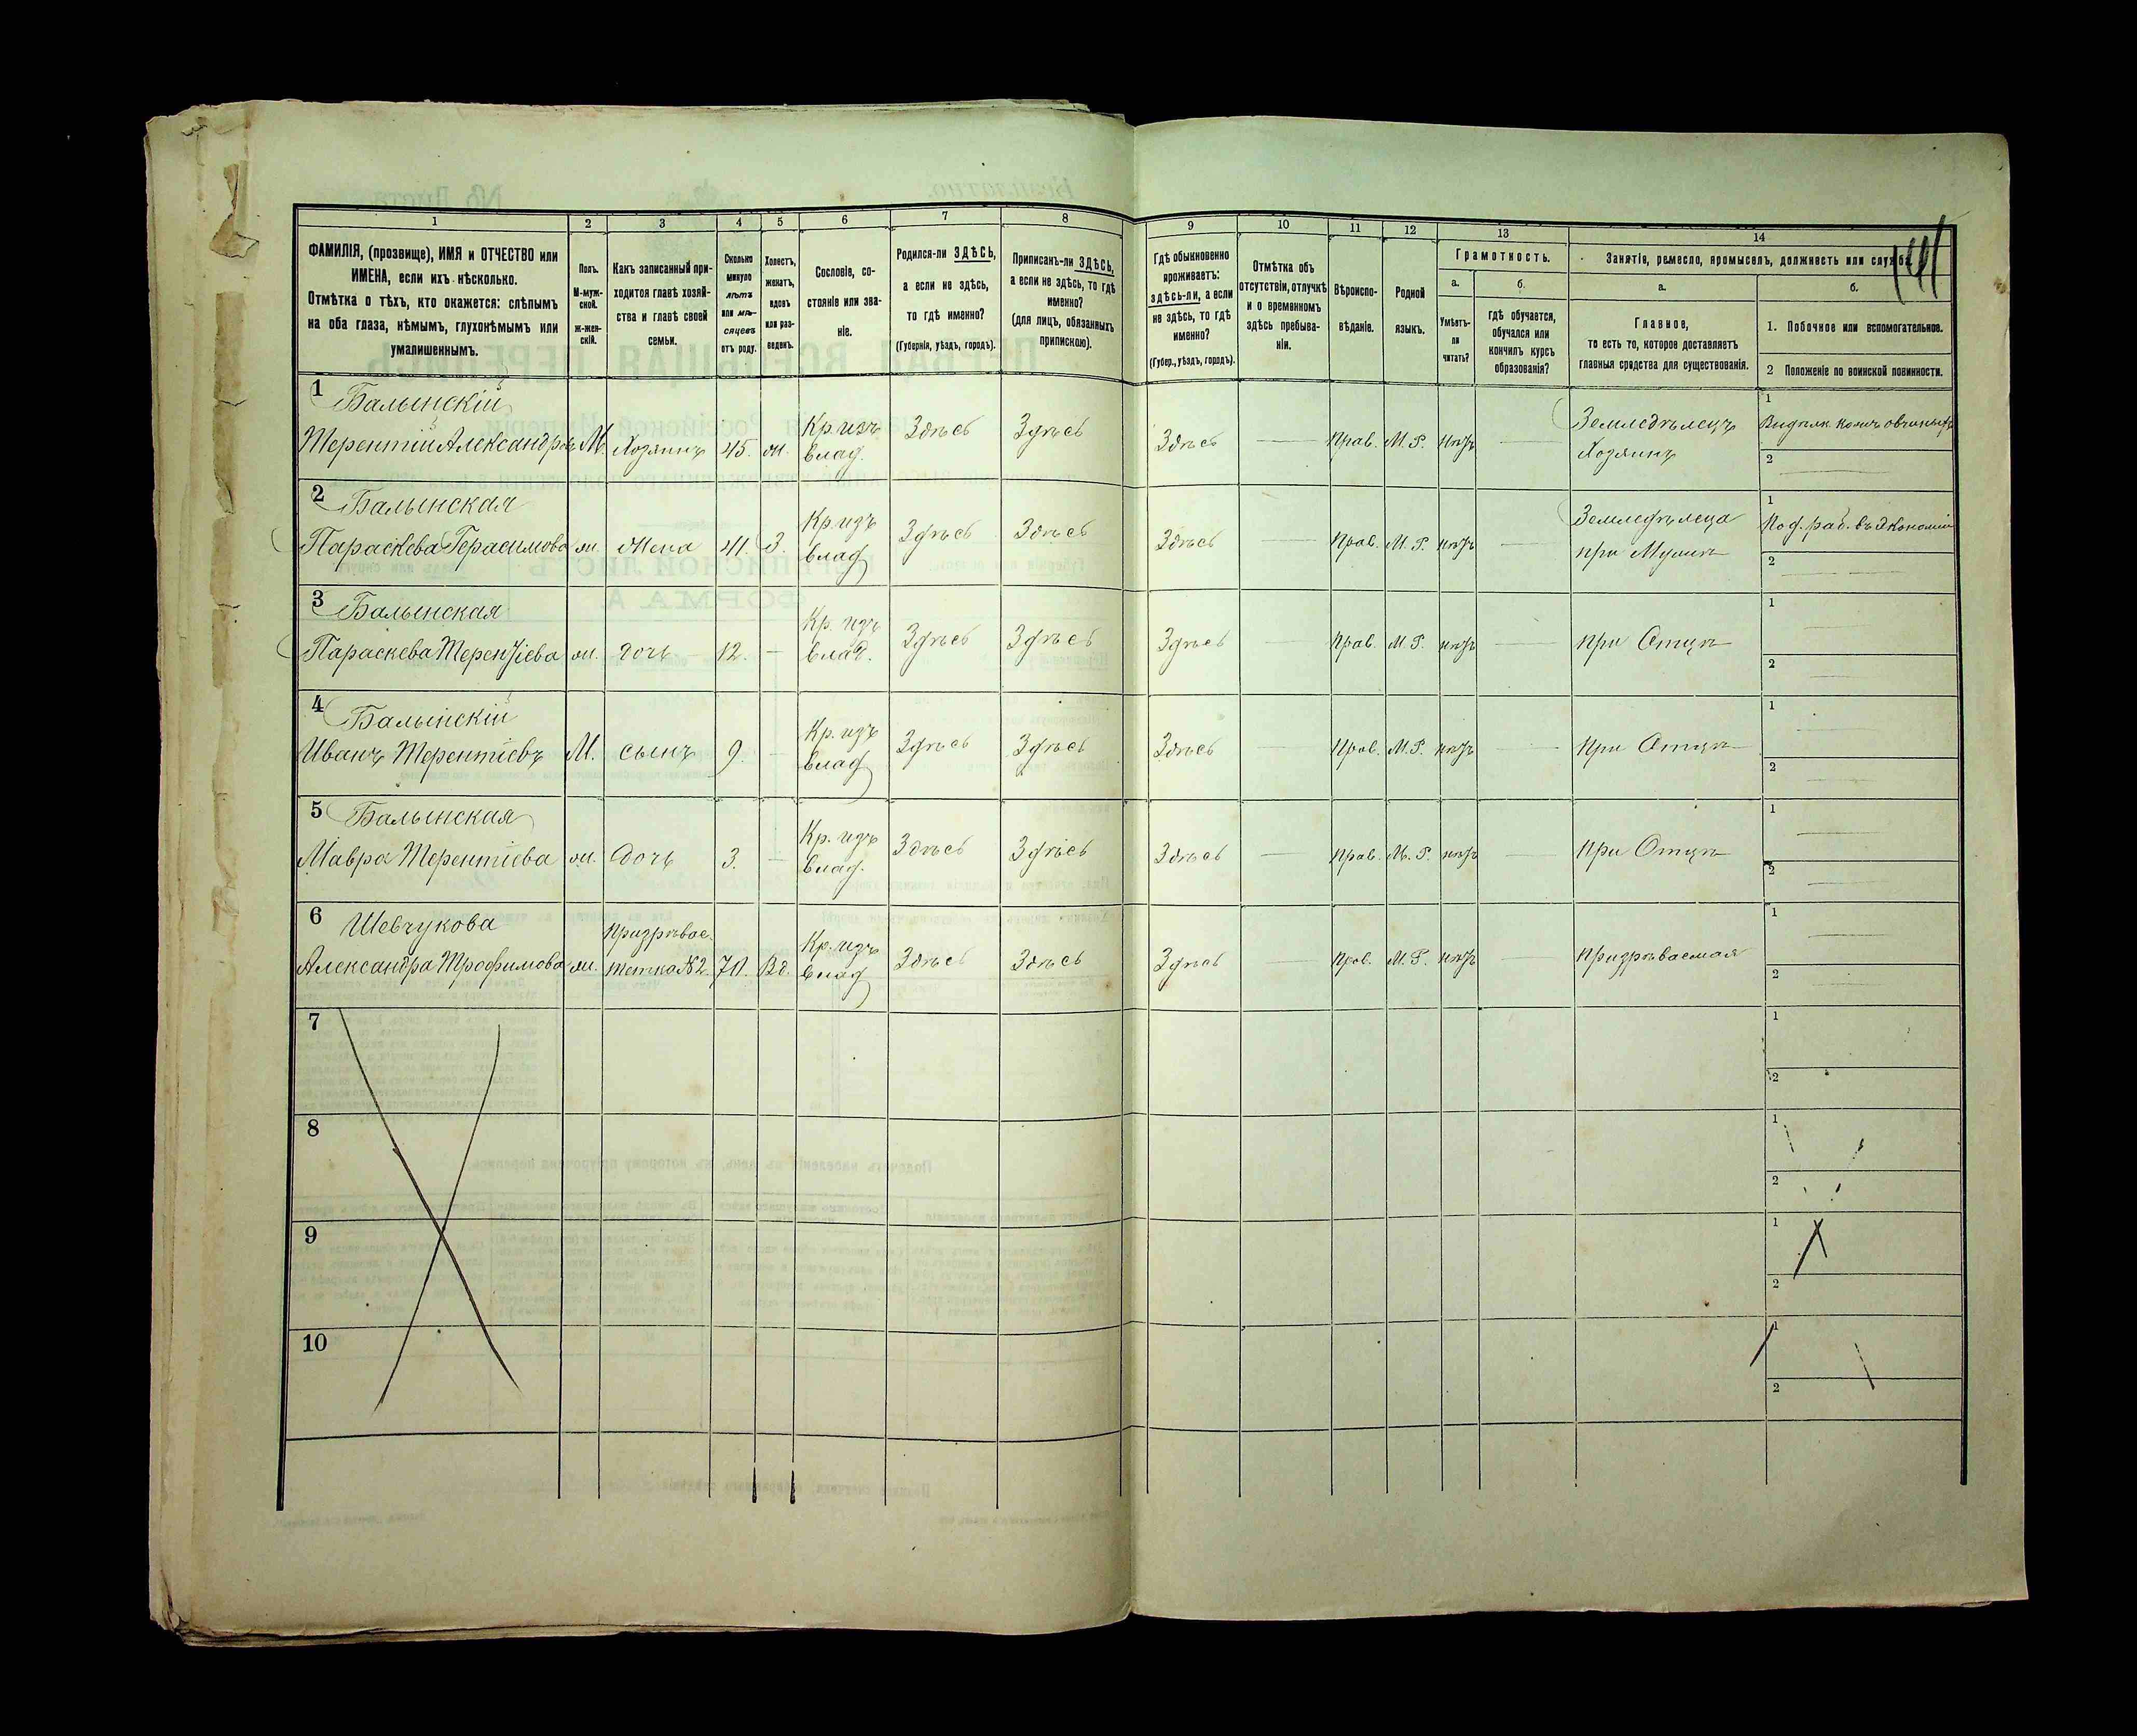 1
2
3
4
5
6
7
8
9
10
11
12
13
14
141
ФАМИЛІЯ, (прозвище), ИМЯ и ОТЧЕСТВО или
ИМЕНА, если ихъ нѣсколько.
Отмѣтка о тѣхъ, кто окажется: слѣпымъ
на оба глаза, нѣмымъ, глухонѣмымъ или
умалишеннымъ.
Полъ.
М-муж-
ской.
ж-жен-
скій.
Какъ записанный при-
ходится главѣ хозяй-
ства и главѣ своей
семьи.
Сколько
минуло
лѣтъ
или мѣ-
сяцевъ
отъ роду.
Холостъ,
женатъ,
вдовъ
или раз-
веденъ.
Сословіе, со-
стояніе или зва-
ніе.
Родился-ли ЗДѢСЬ,
а если не здѣсь,
то гдѣ именно?
(Губернія, уѣздъ, городъ).
Приписанъ-ли ЗДѢСЬ,
а если не здѣсь, то гдѣ
именно?
(для лицъ, обязанныхъ
припискою).
Гдѣ обыкновенно
проживаетъ:
здѣсь-ли, а если
не здѣсь, то гдѣ
именно?
(Губер., уѣздъ, городъ).
Отмѣтка объ
отсутствіи, отлучкѣ
и о временномъ
здѣсь пребыва-
ніи.
Вѣроиспо-
вѣданіе.
Родной
языкъ.
Грамотность.
а.
Умѣетъ-
ли
читать?
б.
гдѣ обучается,
обучался или
кончилъ курсъ
образованія?
Занятіе, ремесло, промыселъ, должность или служба.
а.
Главное,
то есть то, которое доставляетъ
главныя средства для существованія.
б.
1. Побочное или вспомогательное.
2 Положеніе по воинской повинности.
1 Балынскій
Терентій Александровъ М. Хозяинъ 45. ж. Кр. изъ влад. Здѣсь Здѣсь Здѣсь — Прав. М. Р. нѣтъ — Земледѣлецъ Хозяинъ
1
2 —
2 Балынская
Параскева Герасимова ж. Жена 41. З. Кр. изъ влад Здѣсь Здѣсь Здѣсь — Прав. М. Р. нѣтъ — Земледѣлеца при Мужѣ
1 Под. раб. въ Экономіи
2 —
3 Балынская
Параскева Терентіева ж. дочь 12. — Кр. изъ влад. Здѣсь Здѣсь Здѣсь — Прав. М. Р. нѣтъ — при Отцѣ
1 —
2 —
4 Балынскій
Иванъ Терентіевъ М. сынъ 9. — Кр. изъ влад Здѣсь Здѣсь Здѣсь — Прав. М. Р. нѣтъ — при Отцѣ
1 —
2 —
5 Балынская
Мавра Терентіева ж. дочь 3. — Кр. изъ влад. Здѣсь Здѣсь Здѣсь — Прав. М. Р. нѣтъ — при Отцѣ
1 —
2 —
6 Шевчукова
Александра Трофимова ж. Призрѣвае. тетка №2 70. Вд. Кр. изъ влад Здѣсь Здѣсь Здѣсь — Прав. М. Р. нѣтъ — Призрѣваемая
1 —
2 —
7
1
2
8
1
2
9
1
2
10
1
2